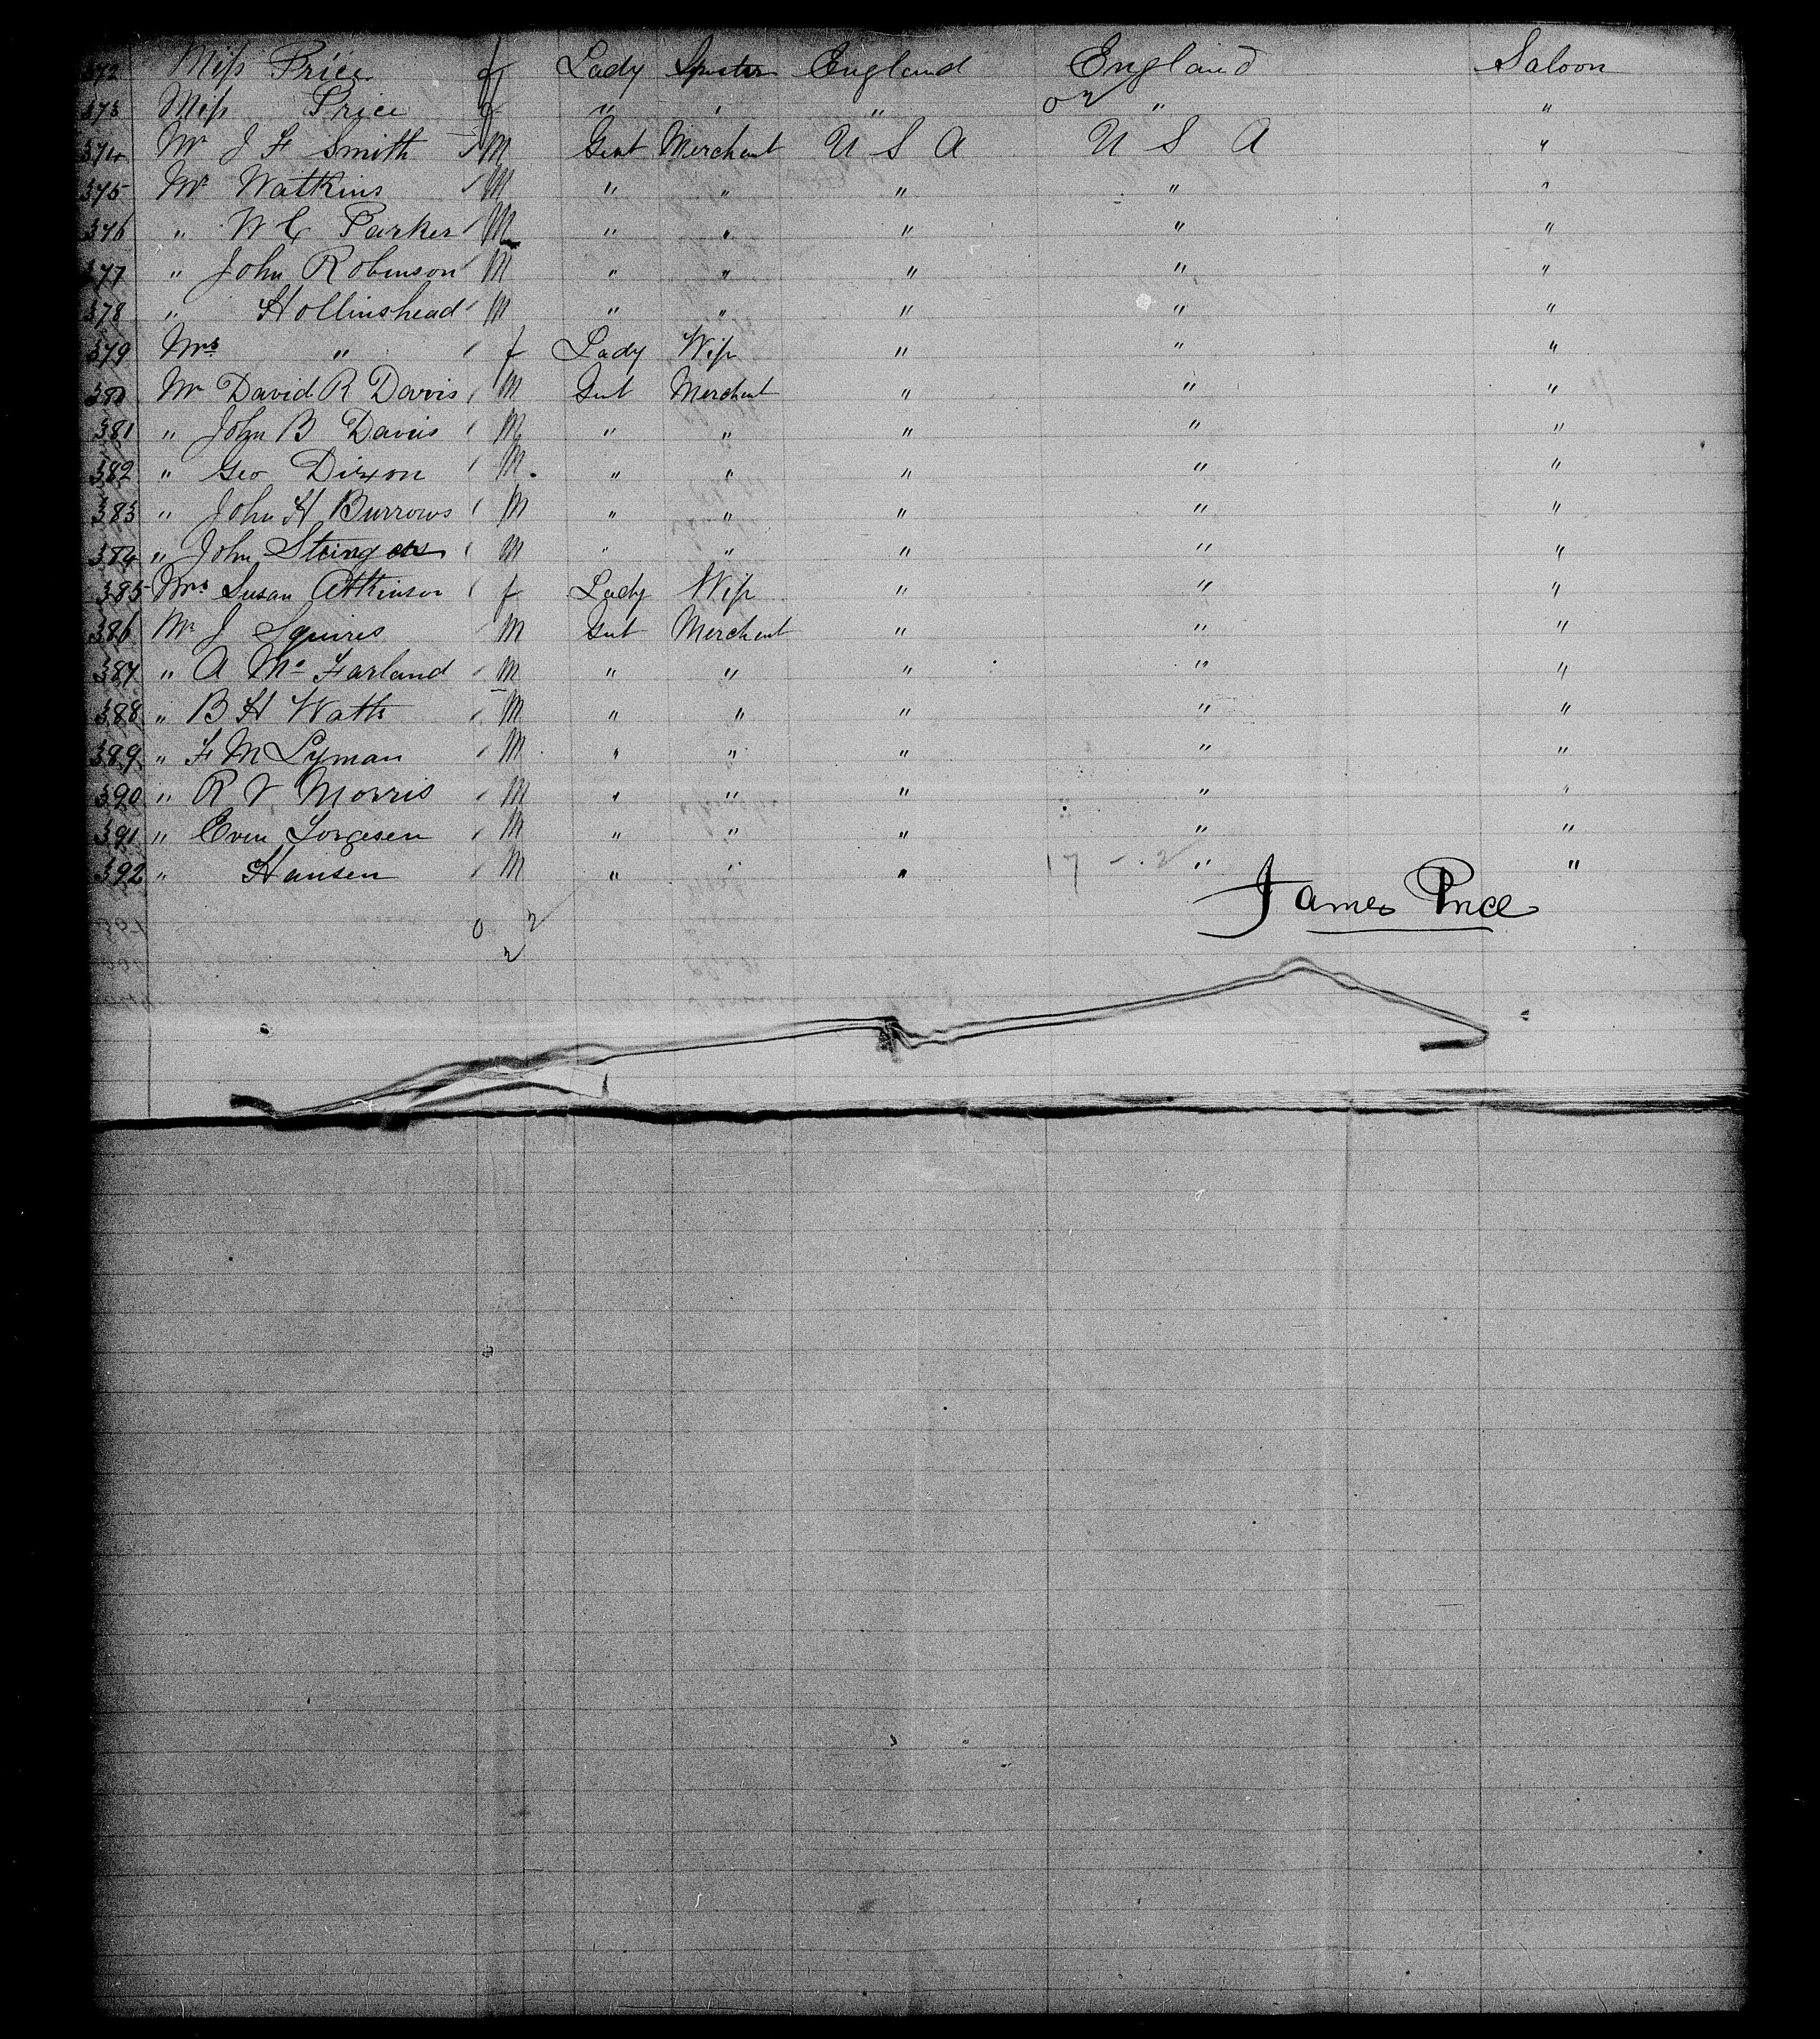 372 Miss Price f Lady Spinster England England Saloon
373 Miss Price f " " " " "
374 Mr J F Smith M Gent Merchant U S A U S A "
375 Mr Watkins M " " " " "
376 " W C Parker M " " " " "
377 " John Robinson M " " " " "
378 " Hollinshead M " " " " "
379 Mrs " f Lady Wife " " "
380 Mr David R Davis M Gent Merchant " " "
381 " John B Davis M " " " " "
382 " Geo Dixon M " " " " "
383 " John H Burrows M " " " " "
384 " John M " " " " "
385 Mrs Susan Atkinson f Lady Wife " " "
386 Mr J Squires M Gent Merchant " " "
387 " A Mc Farland M " " " " "
388 " B H Watts M " " " " "
389 " F M Lyman M " " " " "
390 " R V Morris M " " " " "
391 " Even M " " " " "
392 " Hansen M " " " " "
James Price